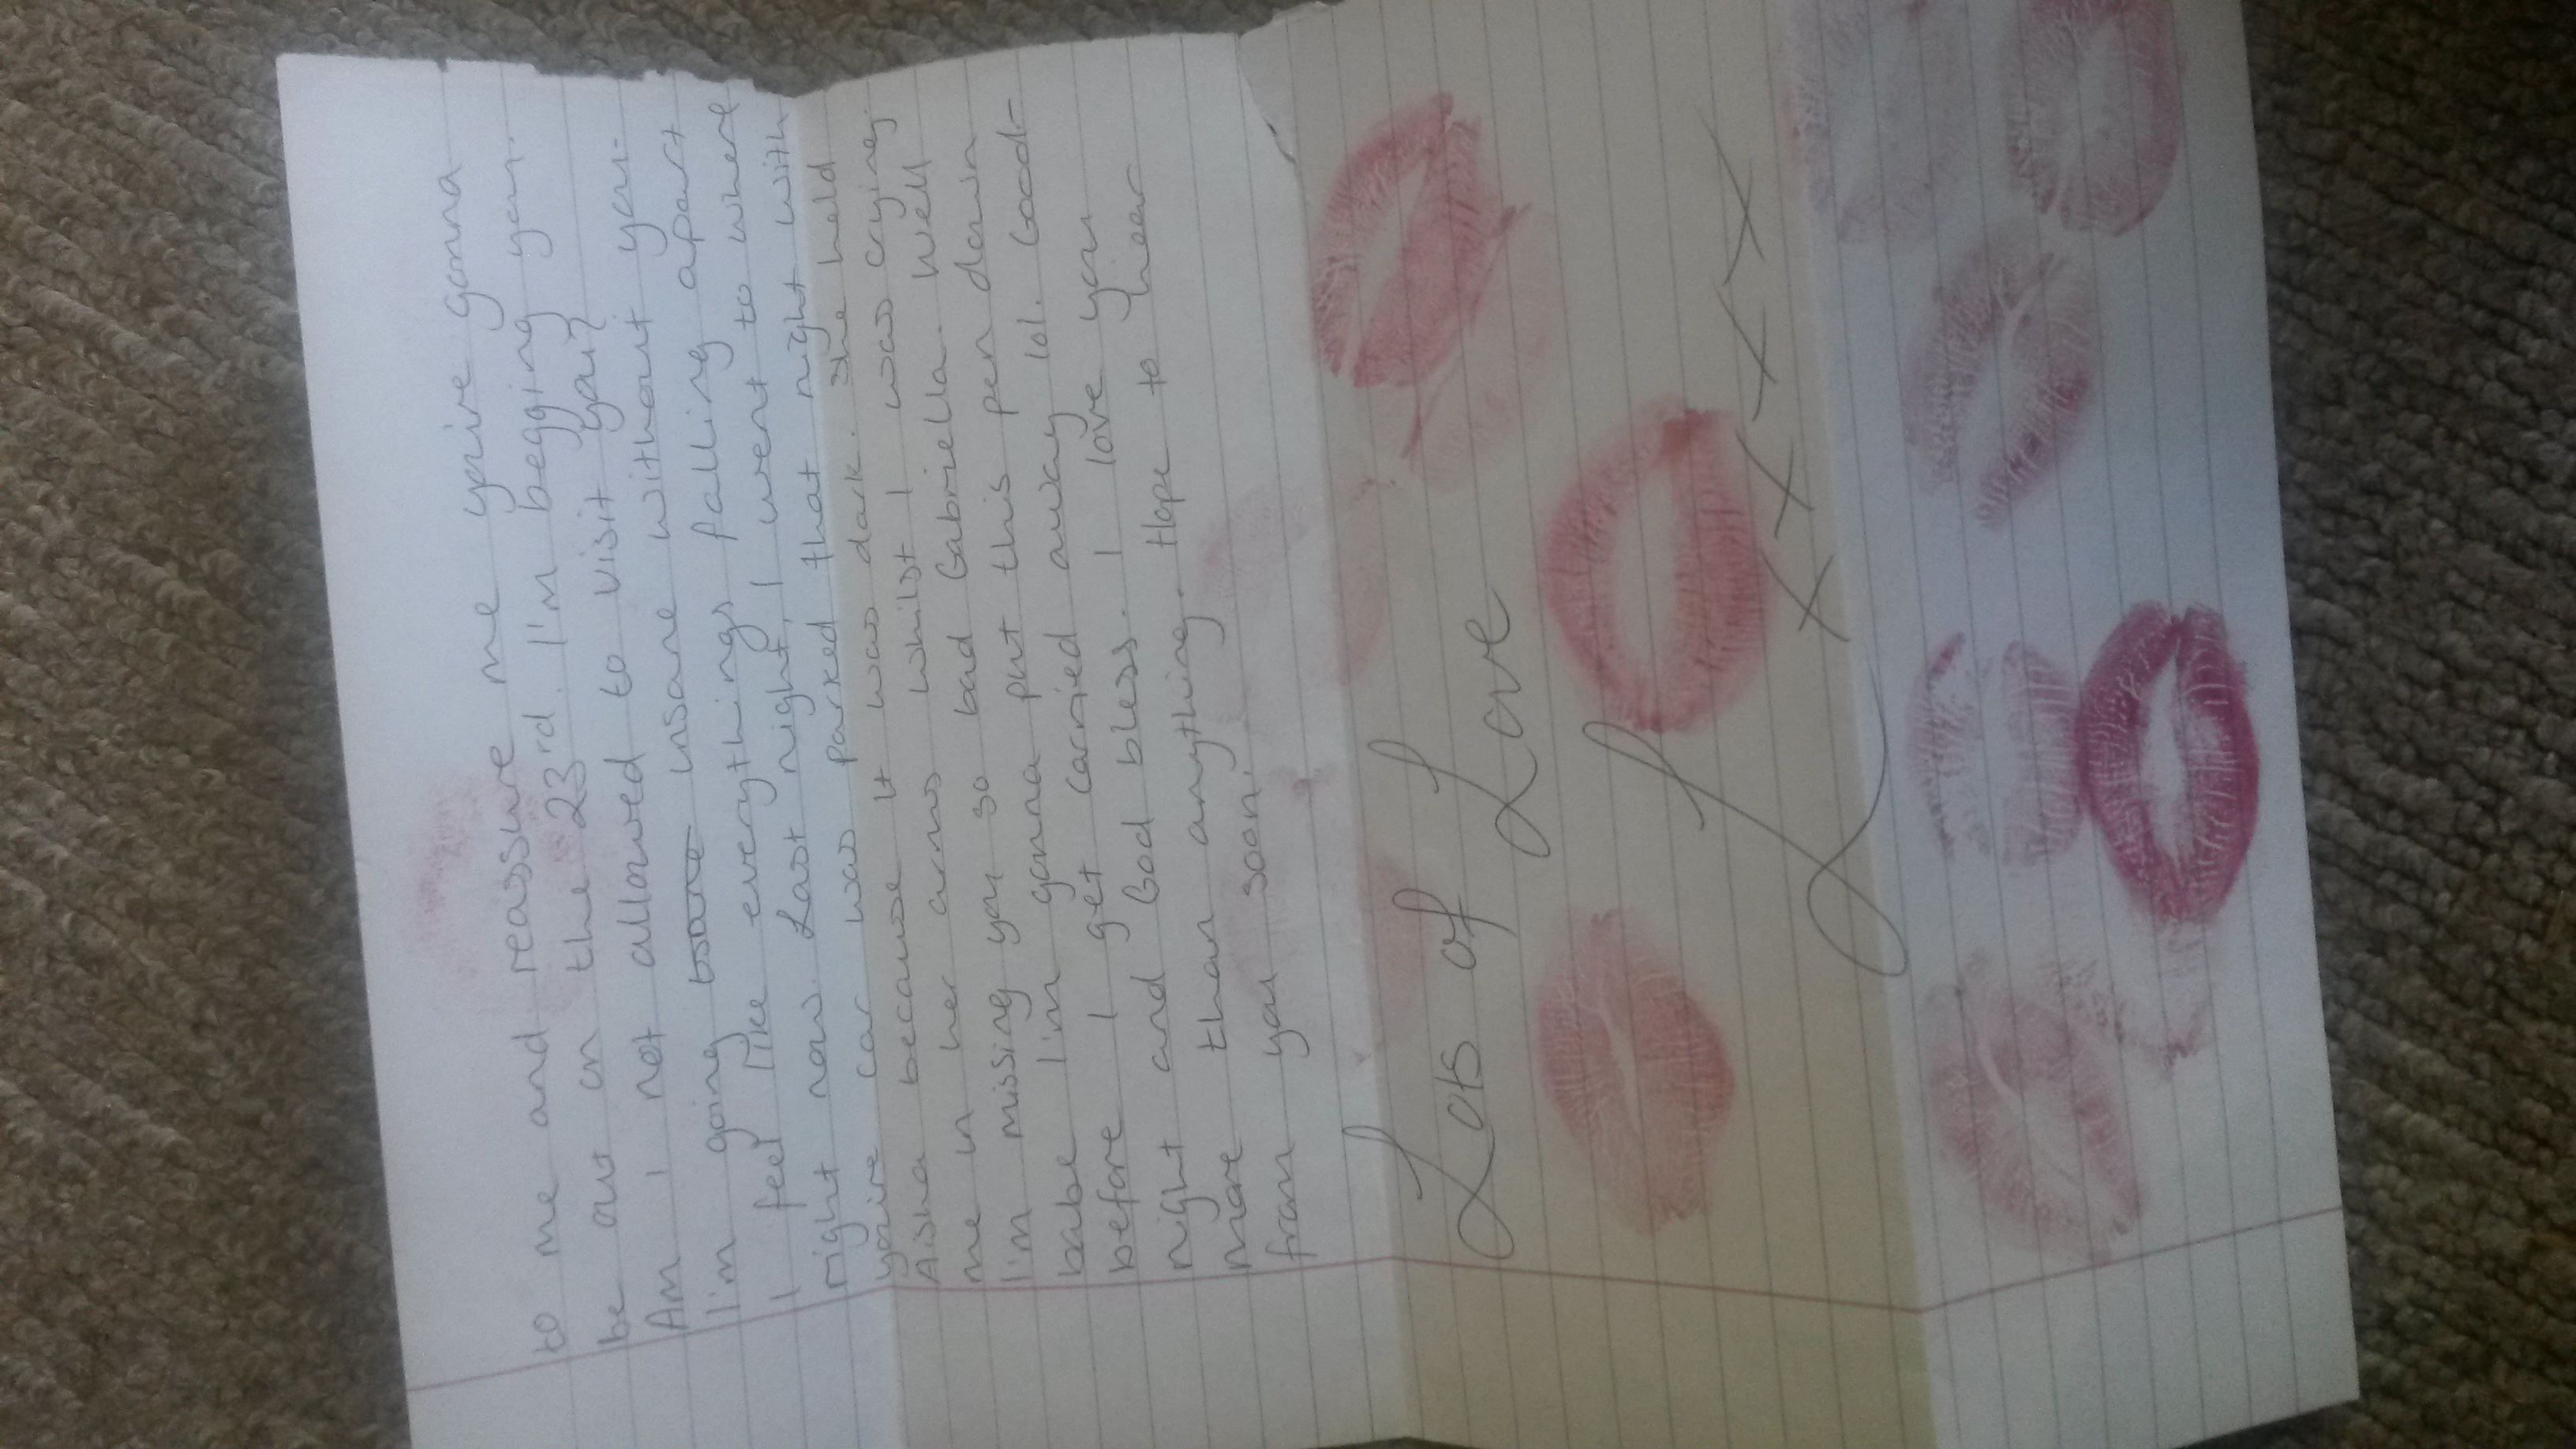 to me and reassure me you're gonna
be out on the 23rd. I'm begging you.
Am I not allowed to visit you?
I'm going insane without you.
I feel like everythings falling apart
right now. Last night, I went to where
you're car was parked that night with
Aisha because it was dark. She held
me in her arms whilst I was crying.
I'm missing you so bad Gabriella. Well
babe I'm gonna put this pen down
before I get carried away lol. Good-
night and God bless. I love you
more than anything. Hope to hear
from you soon.
Lots of Love
L xxxx